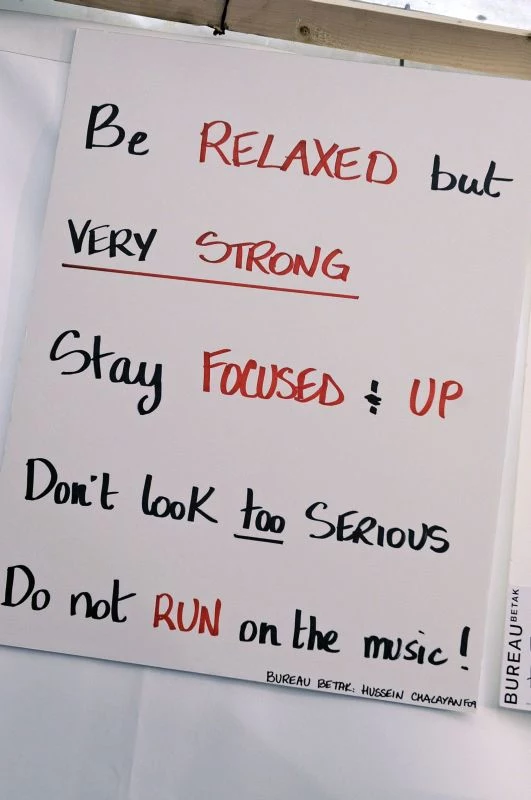 Be RELAXED but
VERY STRONG
Stay FOCUSED & UP
Don't look too SERIOUS
Do not RUN on the music!
BUREAU BETAK: HUSSEIN CHALAYAN F09
BUREAU BETAK